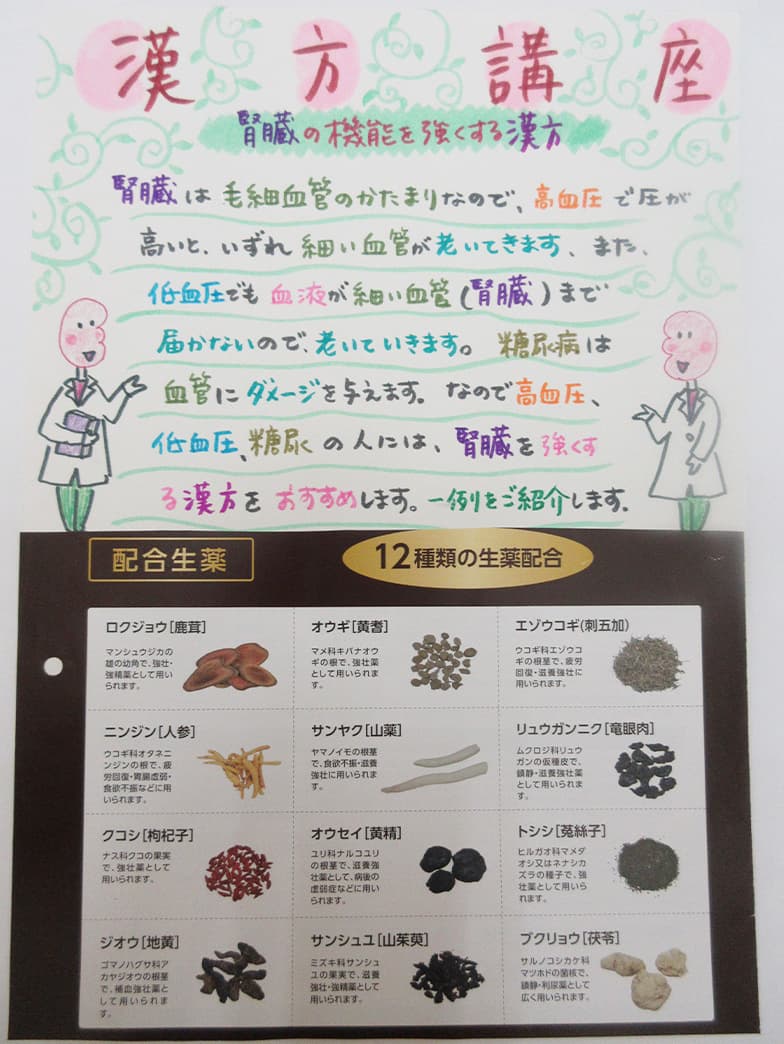 漢方講座
腎臓の機能を強くする漢方
腎臓は毛細血管のかたまりなので、高血圧で圧が
高いと、いずれ細い血管が老いてきます、また、
低血圧でも血液が細い血管(腎臓)まで
届かないので、老いていきます。糖尿病は
血管にダメージを与えます。なので高血圧、
低血圧、糖尿の人には、腎臓を強くす
る漢方をおすすめします。一例をご紹介します.
配合生薬
12種類の生薬配合
ロクジョウ[鹿茸]
マンシュウジカの
雄の幼角で、強壮・
強精薬として用い
られます。
オウギ[黄耆]
マメ科キバナオウ
ギの根で、強壮薬
として用いられま
す。
エゾウコギ(刺五加)
ウコギ科エゾウコ
ギの根茎で、疲労
回復・滋養強壮に
用いられます。
ニンジン[人参]
ウコギ科オタネニ
ンジンの根で、疲
労回復・胃腸虚弱・
食欲不振などに用
いられます。
サンヤク[山薬]
ヤマノイモの根茎
で、食欲不振・滋養
強壮に用いられま
す。
リュウガンニク[竜眼肉]
ムクロジ科リュウ
ガンの仮種皮で、
鎮静・滋養強壮薬
として用いられま
す。
クコシ[枸杞子]
ナス科クコの果実
で、強壮薬として
用いられます。
オウセイ[黄精]
ユリ科ナルコユリ
の根茎で、滋養強
壮薬として、病後の
虚弱症などに用い
られます。
トシシ[菟絲子]
ヒルガオ科マメダ
オシ又はネナシカ
ズラの種子で、強
壮薬として用いら
れます。
ジオウ[地黄]
ゴマノハグサ科ア
カヤジオウの根茎
で、補血強壮薬と
して用いられま
す。
サンシュユ[山茱萸]
ミズキ科サンシュ
ユの果実で、滋養
強壮・強精薬として
用いられます。
ブクリョウ[茯苓]
サルノコシカケ科
マツホドの菌核で、
鎮静・利尿薬として
広く用いられます。